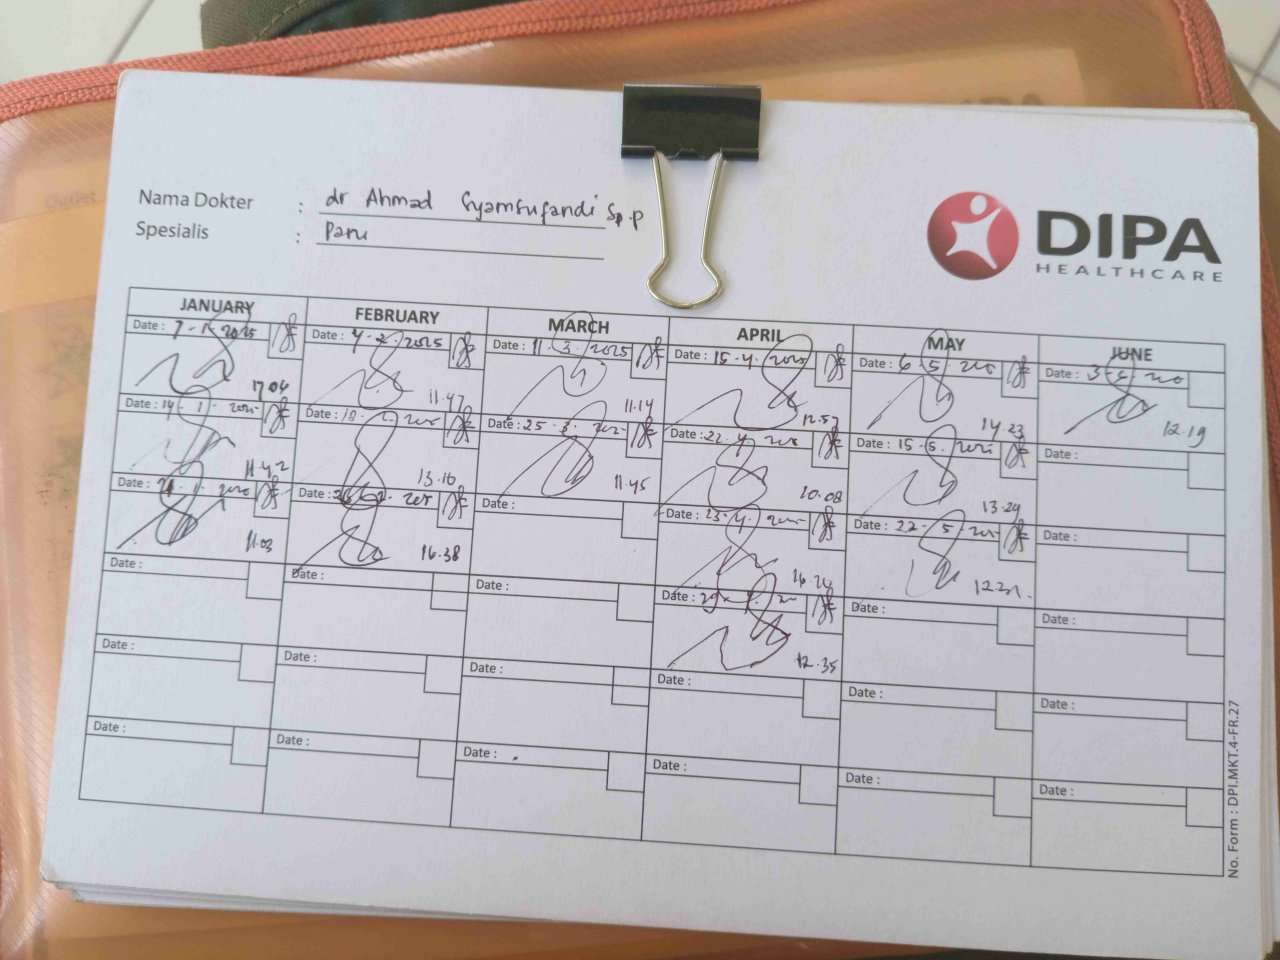 Nama Dokter : dr Ahmad Syamsufandi Sp.p
Spesialis : Paru
DIPA
HEALTHCARE
JANUARY FEBRUARY MARCH APRIL MAY JUNE
Date : 7-1-2025 Date : 4-2-2025 Date : 11-3-2025 Date : 15-4-2025 Date : 6-5- Date : 3-
17.04 11.47 11.14 12.57 14.23 12.19
Date : 14-1- Date : 18- Date : 25-3- Date : 22-4- Date : 15-5- Date :
11.42 13.16 11.45 10.08 13.29
Date : Date : Date : Date : 23-4- Date : 22-5- Date :
11.03 16.38
Date : Date : Date : Date : Date : Date :
12.35
Date : Date : Date : Date : Date : Date :
Date : Date : Date : Date : Date : Date :
No. Form : DPI.MKT.4-FR.27